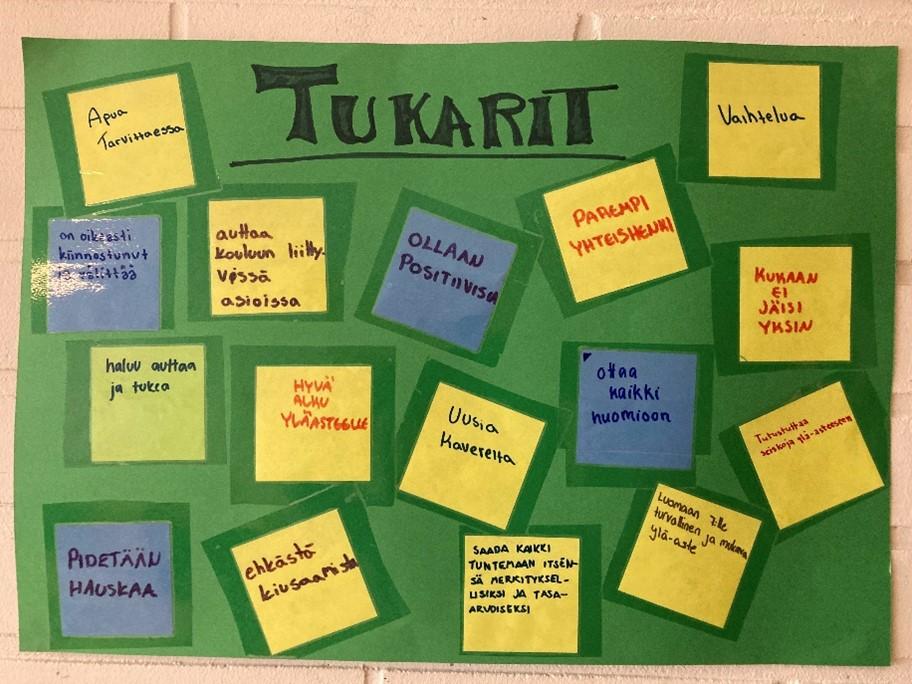 TUKARIT
Apua
Tarvittaessa
Vaihtelua
on oikeesti
kiinnostunut
ja välittää
auttaa
kouluun liitty-
vissä
asioissa
OLLAAN
POSITIIVISIA
PAREMPI
YHTEISHENKI
KUKAAN
EI
JÄISI
YKSIN
haluu auttaa
ja tukea
HYVÄ
ALKU
YLÄASTEELLE
Uusia
Kavereita
ottaa
kaikki
huomioon
Tutustuttaa
ylä-asteeseen
PIDETÄÄN
HAUSKAA
ehkästä
kiusaamista
SAADA KAIKKI
TUNTEMAAN ITSEN-
SÄ MERKITYKSEL-
LISIKSI JA TASA-
ARVOISEKSI
Luomaan 7.lle
turvallinen ja mukava
ylä-aste